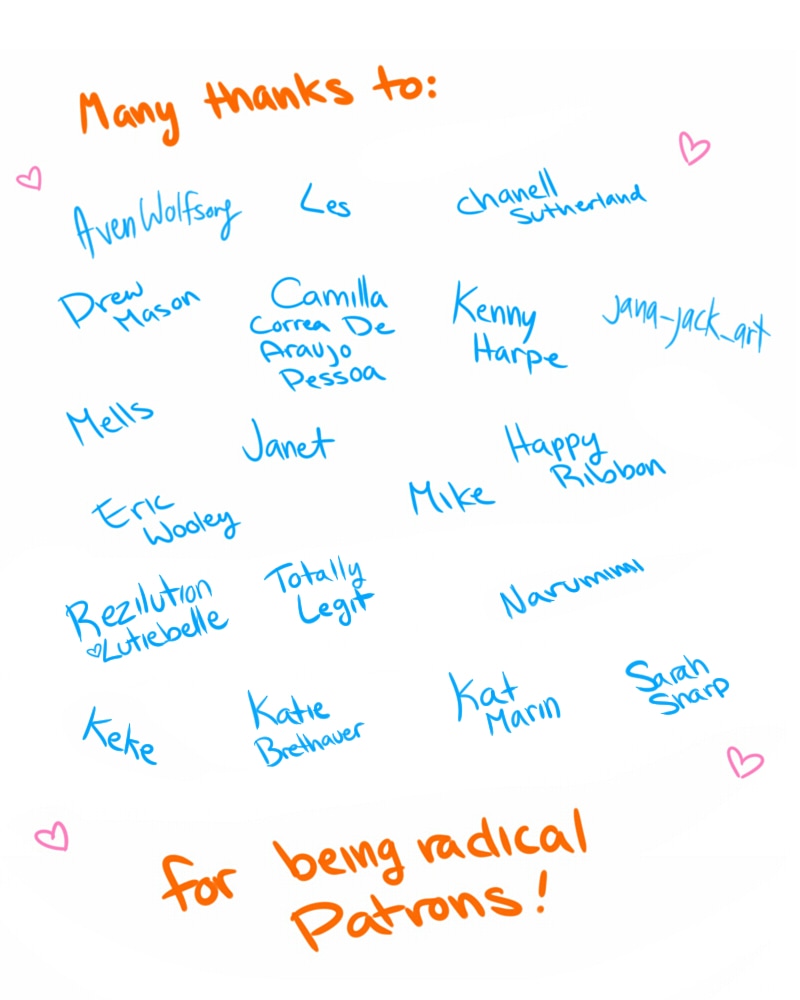 Many thanks to:
AvenWolfsong
Les
Chanell
Sutherland
Drew
Mason
Camilla
Correa De
Araujo
Pessoa
Kenny
Harpe
jana-jack_art
Mells
Janet
Happy
Ribbon
Eric
Wooley
Mike
Rezilution
Lutiebelle
Totally
Legit
Narumimi
Keke
Katie
Brethauer
Kat
Marin
Sarah
Sharp
for being radical
Patrons!